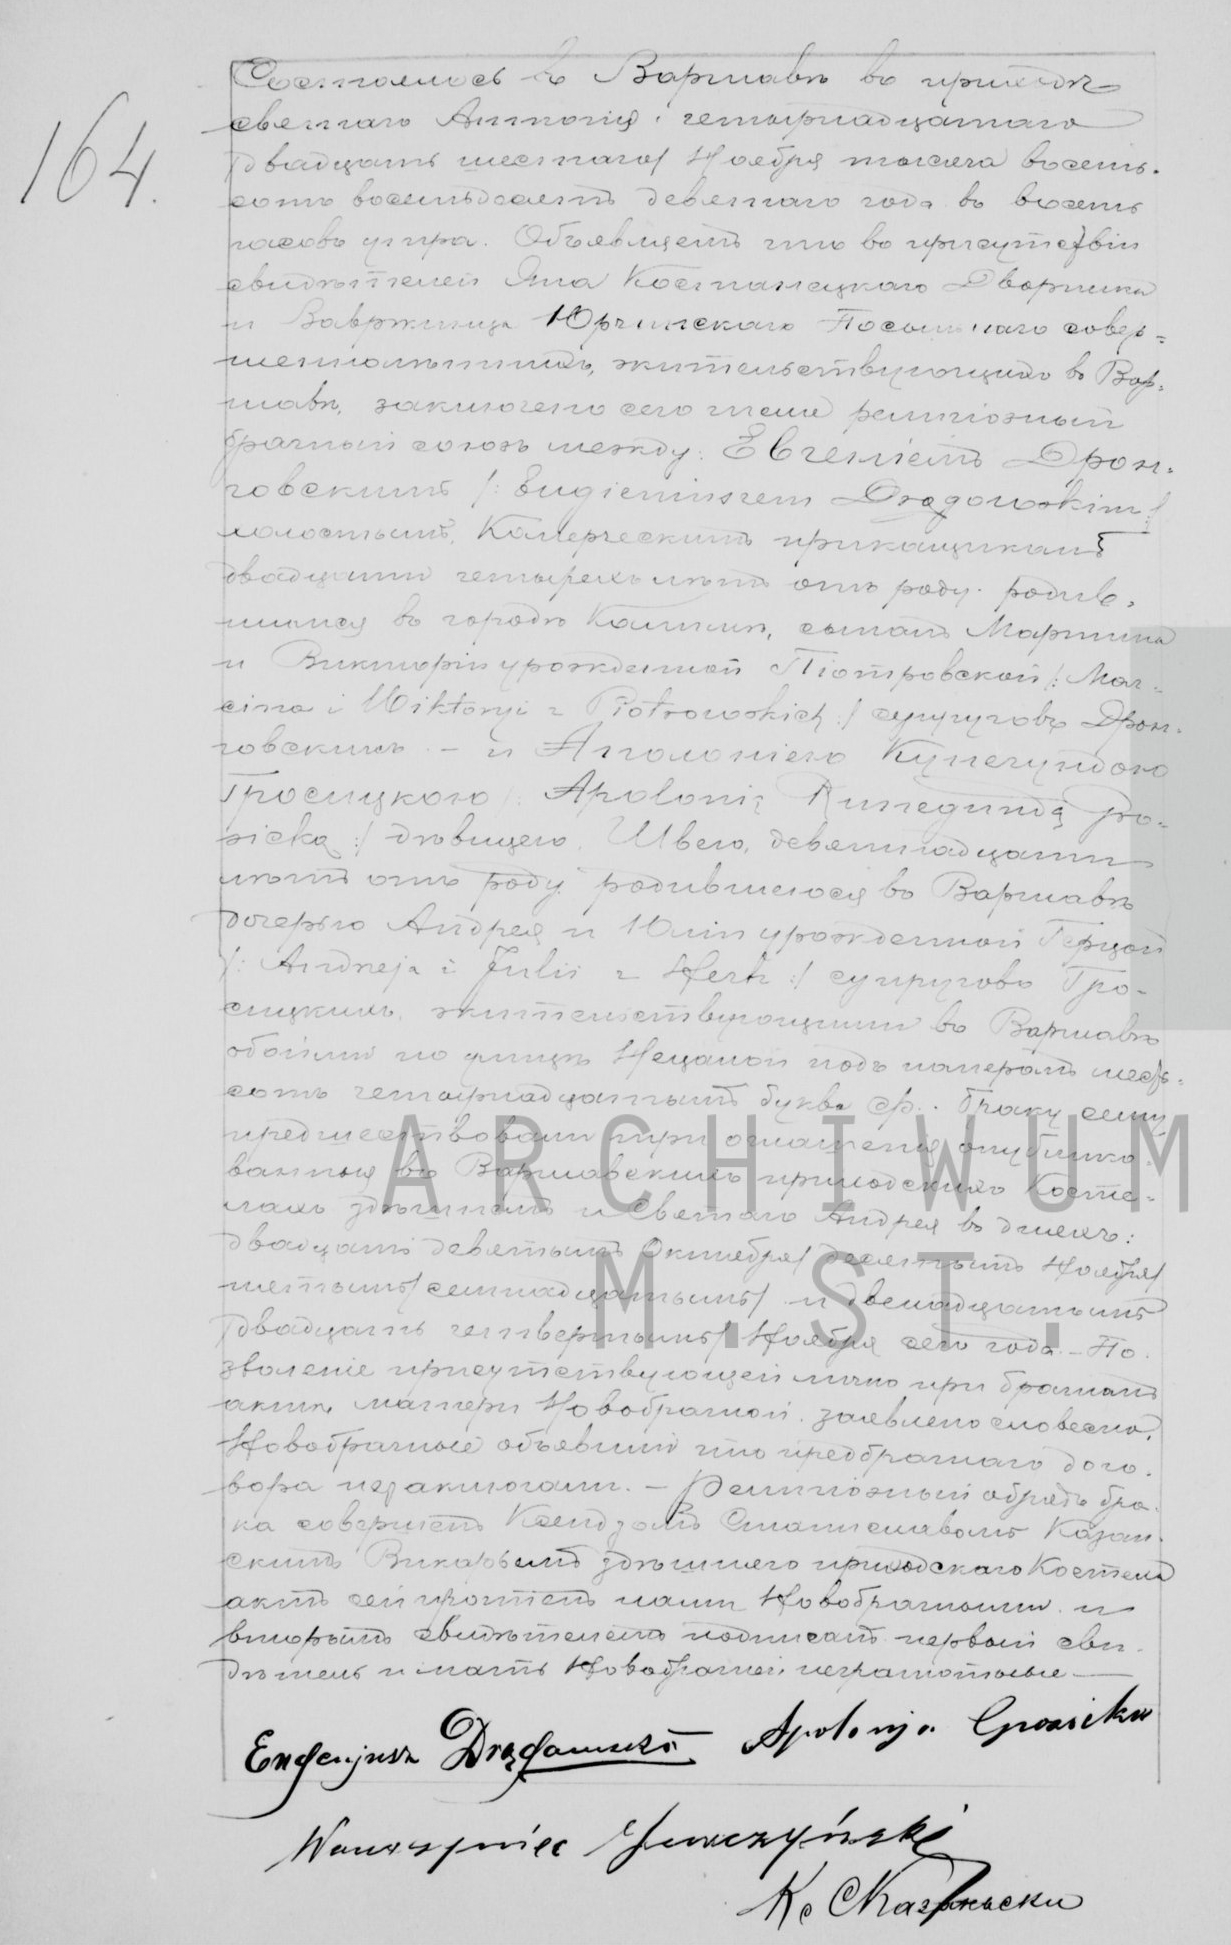 164.
Состоялось въ Варшавѣ въ приходѣ
святаго Антонія четырнадцатаго
/двадцать шестаго/ Ноября тысяча восемь-
сотъ восемьдесятъ девятаго года въ восемь
часовъ утра. Объявляемъ что въ присутствіи
свидѣтелей Яна Костанецкаго Дворника
и Вавржинца Юрчинскаго совер-
шеннолѣтнихъ, жительствующихъ въ Вар-
шавѣ, заключенъ сего числа религіозный
брачный союзъ между: Евгеніемъ Дрон-
говскимъ /: Eugieniuszem Drągowskim :/
холостымъ, Комерческимъ прикащикомъ
двадцати четырехъ лѣтъ отъ роду родив-
шимся въ городѣ Калишѣ, сыномъ Мартина
и Викторіи урожденной Піотровской /: Mar-
cina i Wiktoryi z Piotrowskich :/ супруговъ Дрон-
говскихъ – и Аполоніею Кунегундою
Гросицкою /: Apolonią Kunegundą Gro-
sicką :/ дѣвицею, Швею, девятнадцати
лѣтъ отъ роду родившеюся въ Варшавѣ
дочерью Андрея и Юліи урожденной Герцъ
/: Andrzeja i Julii z Hertz :/ супруговъ Гро-
сицкихъ, жительствующими въ Варшавѣ
обоими по улицѣ Нецалой подъ номеромъ шесть-
сотъ четырнадцатымъ буква ф. Браку сему
предшествовали три оглашенія опублико-
ванныя въ Варшавскихъ приходскихъ Косте-
лахъ здѣшнемъ и Святаго Андрея въ дняхъ:
двадцать девятымъ Октября /десятымъ Ноября/
пятымъ /семнадцатымъ/ и двенадцатымъ
/двадцать четвертымъ/ Ноября сего года – По-
зволеніе присутствующей лично при брачномъ
актѣ матери Новобрачной заявлено словесно.
Новобрачные объявили что предбрачнаго дого-
вора не заключали. – Религіозный обрядъ бра-
ка совершенъ Ксендзомъ Станиславомъ Казан-
скимъ Викаріемъ здѣшняго приходскаго Костела
актъ сей прочтенъ нами Новобрачными и
вторымъ свидѣтелемъ подписанъ первый сви-
дѣтель и мать Новобрачной неграмотные —
Eugenjusz Drągowski Apolonja Grosicka
Wawrzyniec Jurczyński
Ks
ARCHIWUM
M.ST.